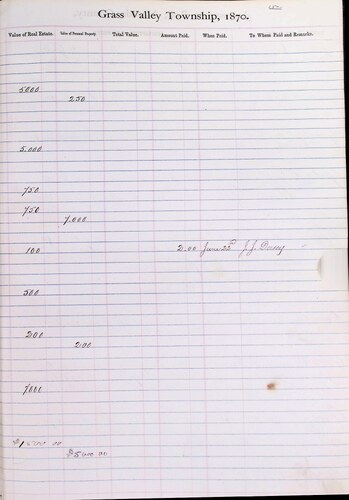 Grass Valley Township, 1870.
Value of Real Estate. Value of Personal Property. Total Value. Amount Paid. When Paid. To Whom Paid and Remarks.
5000
250
5.000
750
750
7.000
100 2.00 June 22d J. J.
300
200
200
7000